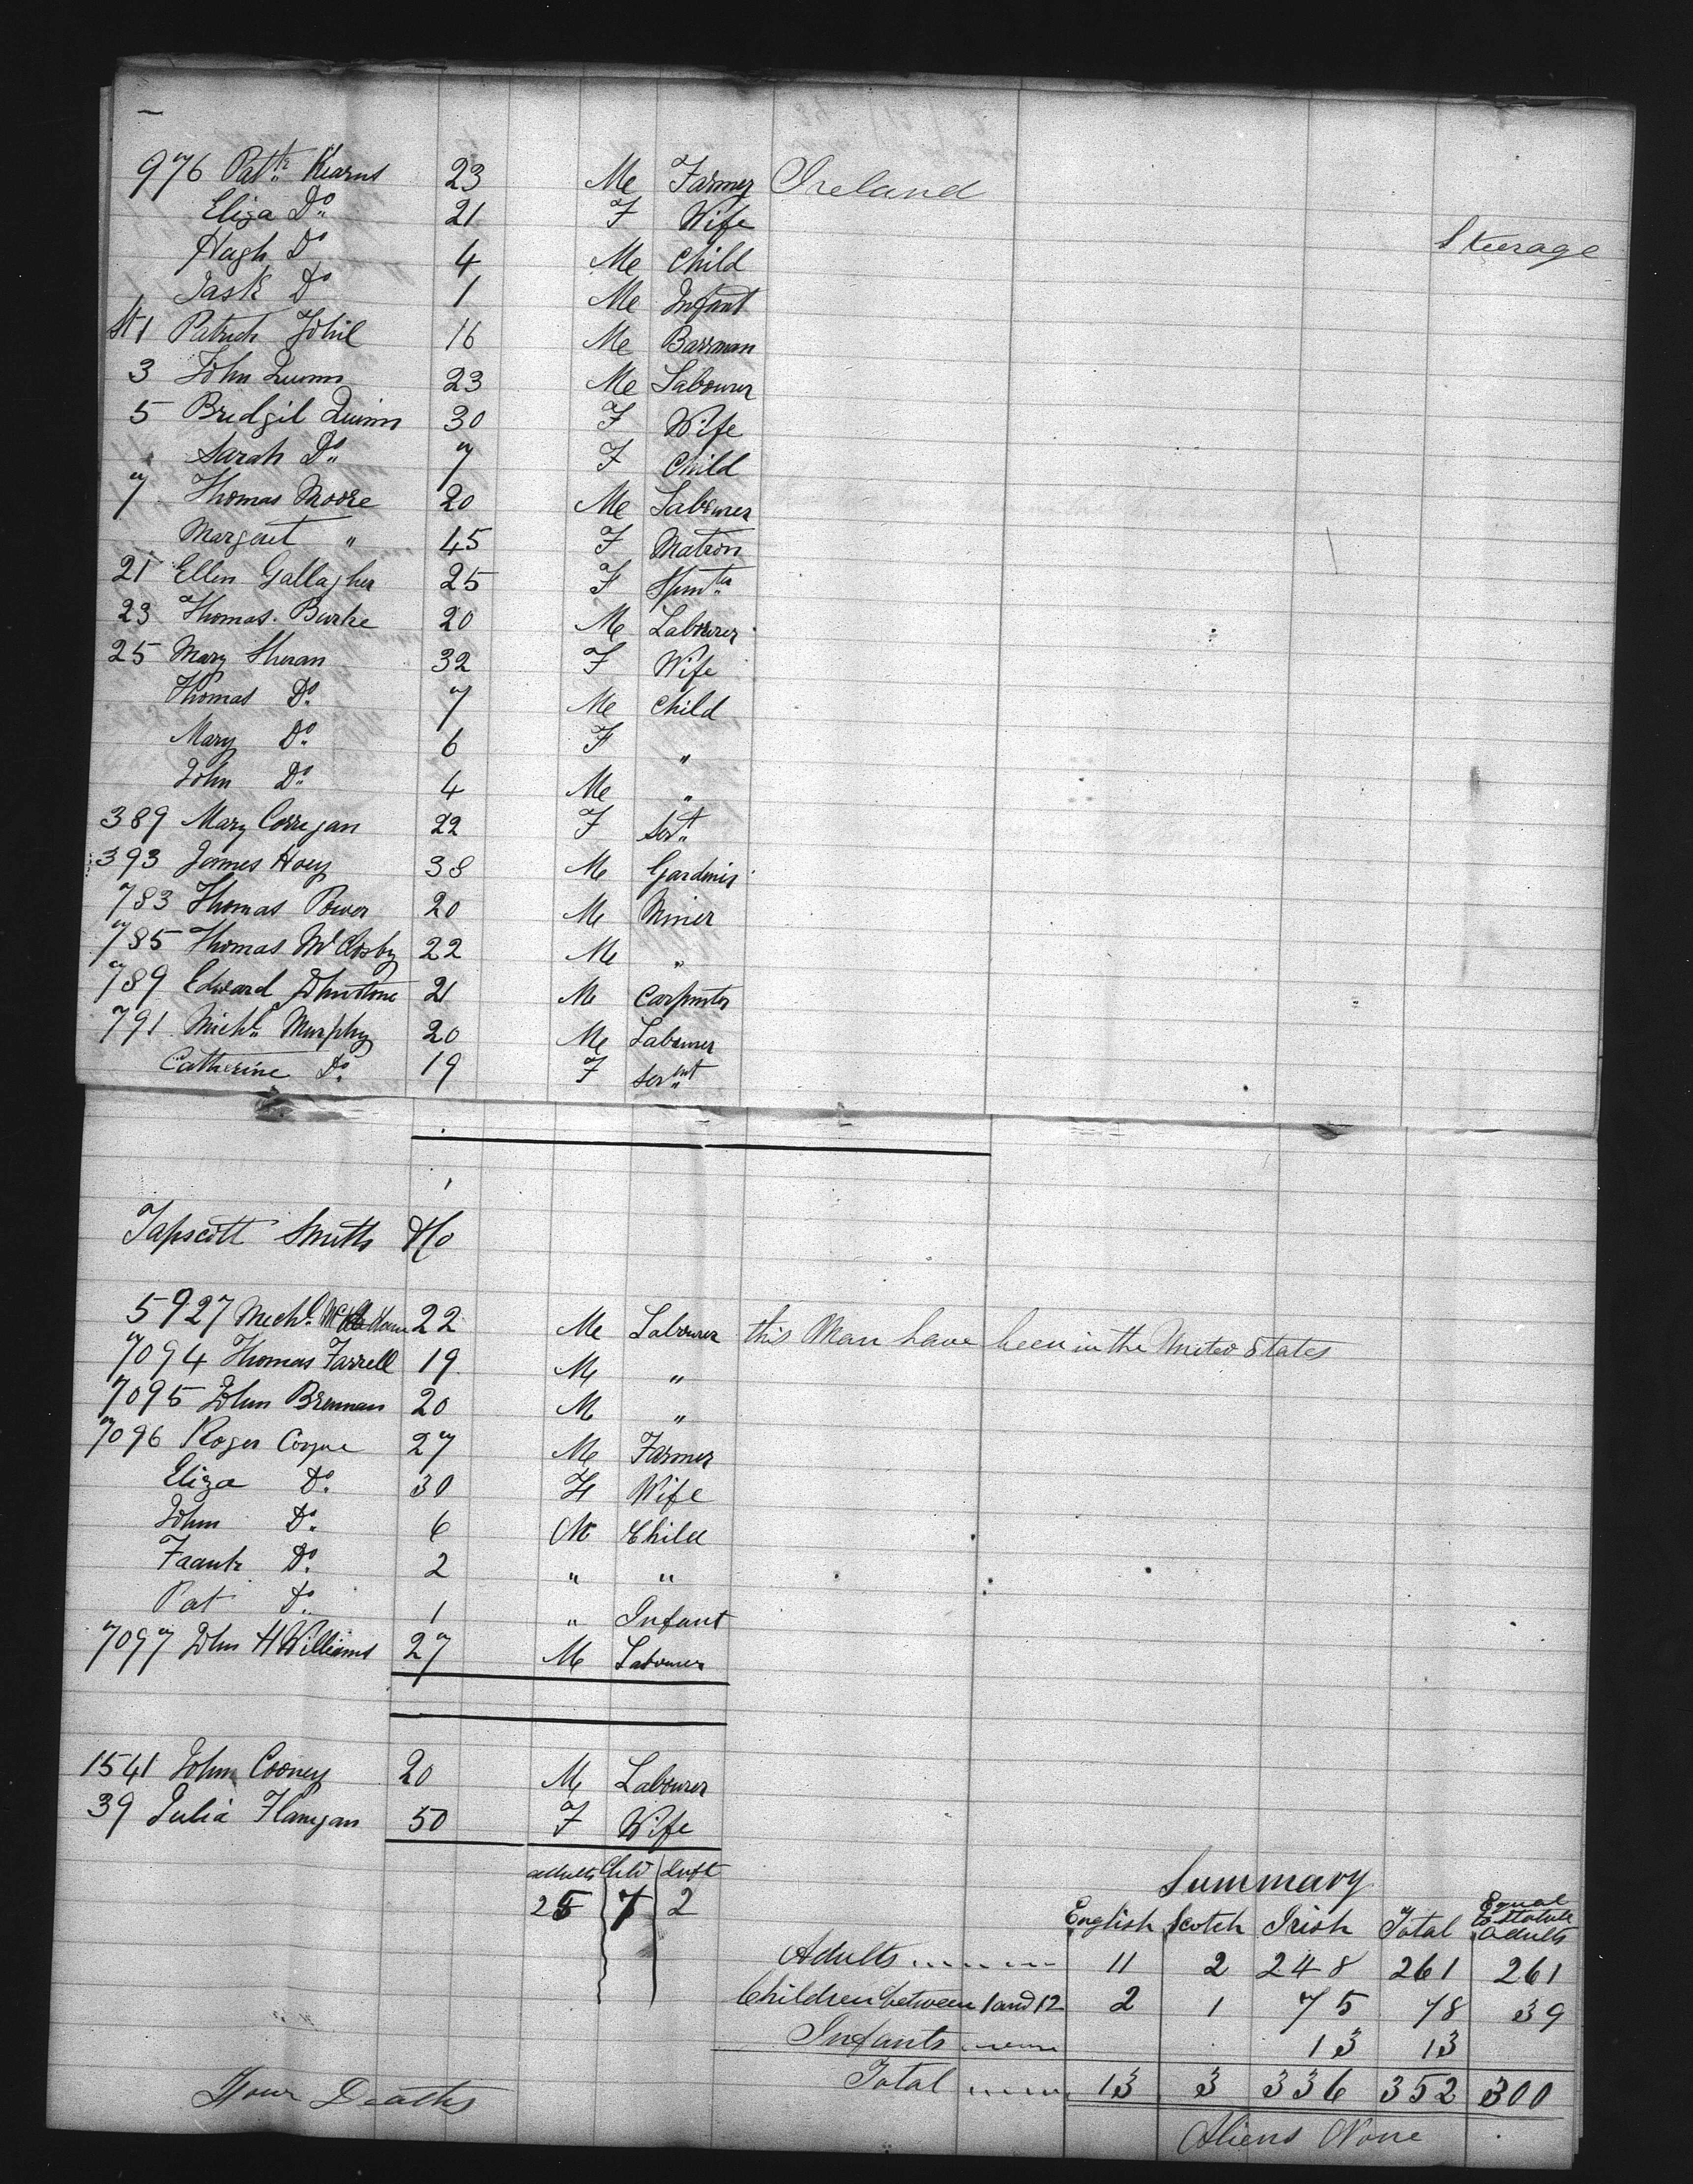 976 Patk. Kearns 23 Me Farmer Ireland
Eliza Do. 21 F Wife
Steerage
Hugh Do 4 Me Child
Do 1 Me Infant
Patrick 16 Me Barman
3 John Quinn 23 Me Labourer
5 Bridgit Quinn 30 F Wife
Sarah Do. 7 F Child
7 Thomas Moore 20 Me Labourer
Margaret " 45 F Matron
21 Ellen Gallagher 25 F
23 Thomas Burke 20 Me Labourer
25 Mary Sheran 32 F Wife
Thomas Do. 7 Me Child
Mary Do. 6 F "
John Do. 4 Me "
389 Mary Corrigan 22 F Servt.
393 James Hoey 38 M Gardinir
783 Thomas Power 20 M Miner
785 Thomas 22 M "
789 Edward Johnstone 21 M Carpenter
791 Michl. Murphy 20 Me Labourer
Catherine Do. 19 F Servnt
Tapscott Smiths & Co
5927 Michl. 22 Me Labourer this Man have been in the United States
7094 Thomas Farrell 19 M "
7095 John Brennan 20 M "
7096 Roger Coyne 27 Me Farmer
Eliza Do. 30 F Wife
John Do. 6 M Child
Fraank Do. 2 " "
Pat Do. 1 " Infant
7097 John H Williams 27 M Labourer
1541 John Cooney 20 M Labourer
39 Julia Flanigan 50 F Wife
adults Chld Inft
25 7 2
Summary
English Scotch Irish Total Equal to Statute Adults
Adults 11 2 248 261 261
Children between 1 and 12 2 1 75 78 39
Infants 13 13
Total 13 3 336 352 300
Aliens None
Four Deaths